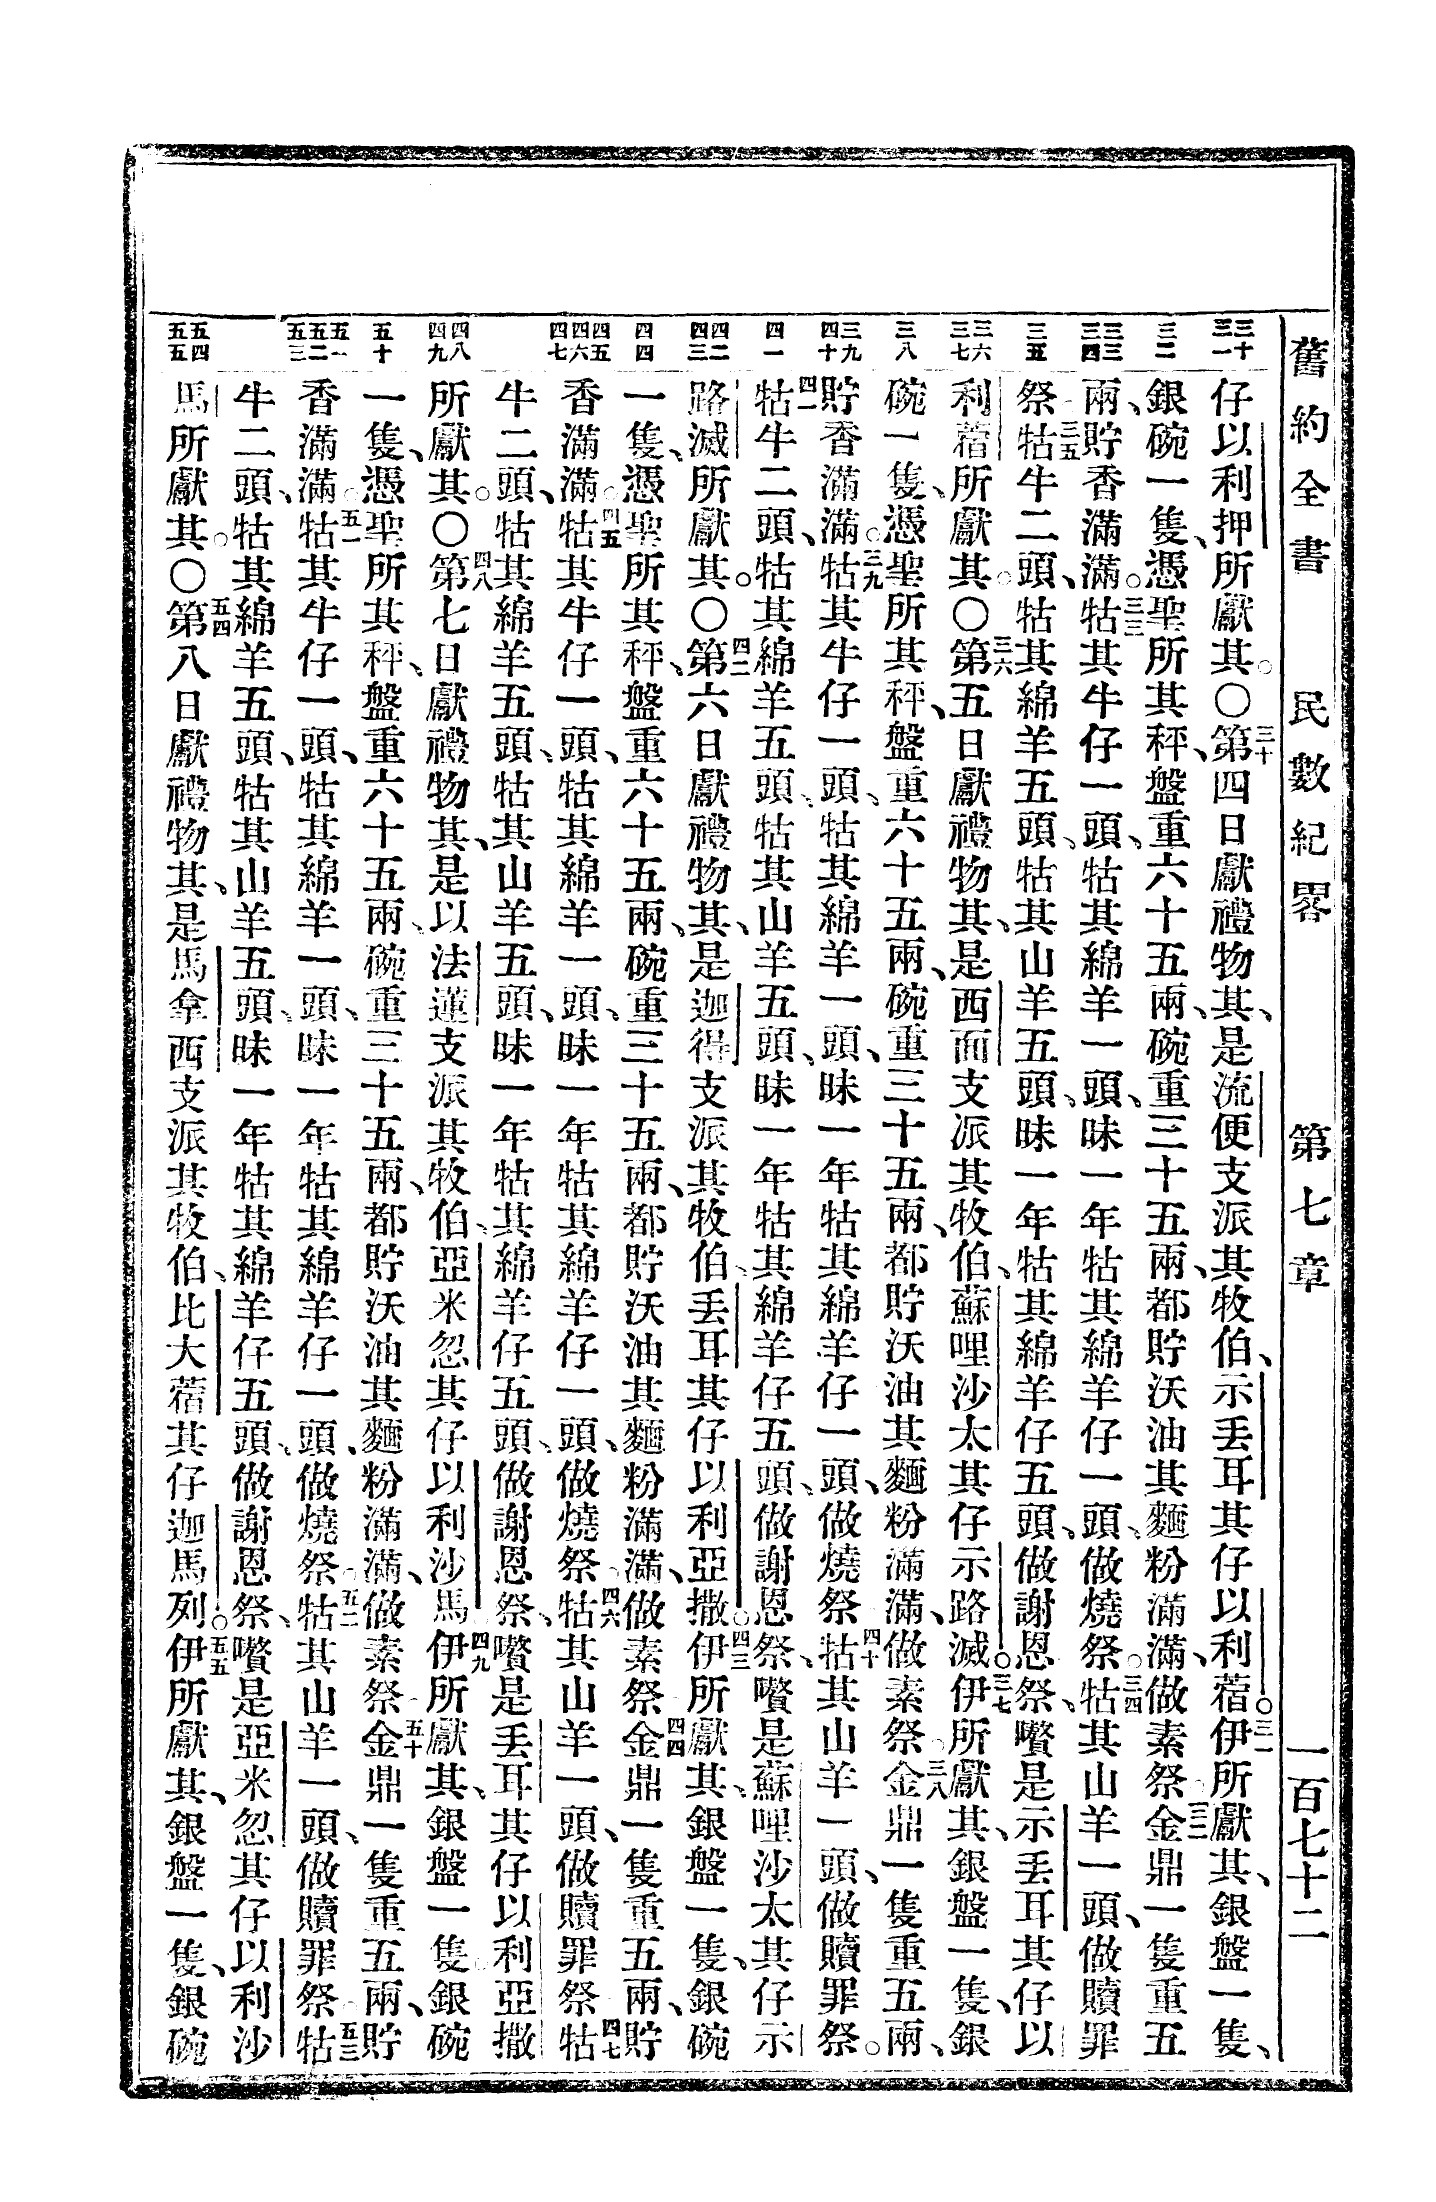 舊約全書　民數紀畧　第七章　一百七十二
三十 三一
仔以利押所獻其。〇三十第四日獻禮物其、是流便支派其牧伯、示丟耳其仔以利蓿。三一伊所獻其、銀盤一隻、
三二
銀碗一隻、憑聖所其秤、盤重六十五兩、碗重三十五兩、都貯沃油其麵粉滿滿、做素祭。三二金鼎一隻重五
三三 三四
兩、貯香滿滿。三三牯其牛仔一頭、牯其綿羊一頭、昧一年牯其綿羊仔一頭、做燒祭。三四牯其山羊一頭、做贖罪
三五
祭。三五牯牛二頭、牯其綿羊五頭、牯其山羊五頭、昧一年牯其綿羊仔五頭、做謝恩祭、囋是示丟耳其仔以
三六 三七
利蓿所獻其。〇三六第五日獻禮物其、是西面支派其牧伯、蘇哩沙太其仔示路滅。三七伊所獻其、銀盤一隻、銀
三八
碗一隻、憑聖所其秤、盤重六十五兩、碗重三十五兩、都貯沃油其麵粉滿滿、做素祭。三八金鼎一隻重五兩、
三九 四十
貯香滿滿。三九牯其牛仔一頭、牯其綿羊一頭、昧一年牯其綿羊仔一頭、做燒祭。四十牯其山羊一頭、做贖罪祭。
四一
四一牯牛二頭、牯其綿羊五頭、牯其山羊五頭、昧一年牯其綿羊仔五頭、做謝恩祭、囋是蘇哩沙太其仔示
四二 四三
路滅所獻其。〇四二第六日獻禮物其、是迦得支派其牧伯、丟耳其仔以利亞撒。四三伊所獻其、銀盤一隻、銀碗
四四
一隻、憑聖所其秤、盤重六十五兩、碗重三十五兩、都貯沃油其麵粉滿滿、做素祭。四四金鼎一隻重五兩、貯
四五 四六 四七
香滿滿。四五牯其牛仔一頭、牯其綿羊一頭、昧一年牯其綿羊仔一頭、做燒祭。四六牯其山羊一頭、做贖罪祭。四七牯
牛二頭、牯其綿羊五頭、牯其山羊五頭、昧一年牯其綿羊仔五頭、做謝恩祭、囋是丟耳其仔以利亞撒
四八 四九
所獻其。〇四八第七日獻禮物其、是以法蓮支派其牧伯、亞米忽其仔以利沙馬。四九伊所獻其、銀盤一隻、銀碗
五十
一隻、憑聖所其秤、盤重六十五兩、碗重三十五兩、都貯沃油其麵粉滿滿、做素祭。五十金鼎一隻重五兩、貯
五一 五二 五三
香滿滿。五一牯其牛仔一頭、牯其綿羊一頭、昧一年牯其綿羊仔一頭、做燒祭。五二牯其山羊一頭、做贖罪祭。五三牯
牛二頭、牯其綿羊五頭、牯其山羊五頭、昧一年牯其綿羊仔五頭、做謝恩祭、囋是亞米忽其仔以利沙
五四 五五
馬所獻其。〇五四第八日獻禮物其、是馬拿西支派其牧伯、比大蓿其仔迦馬列。五五伊所獻其、銀盤一隻、銀碗